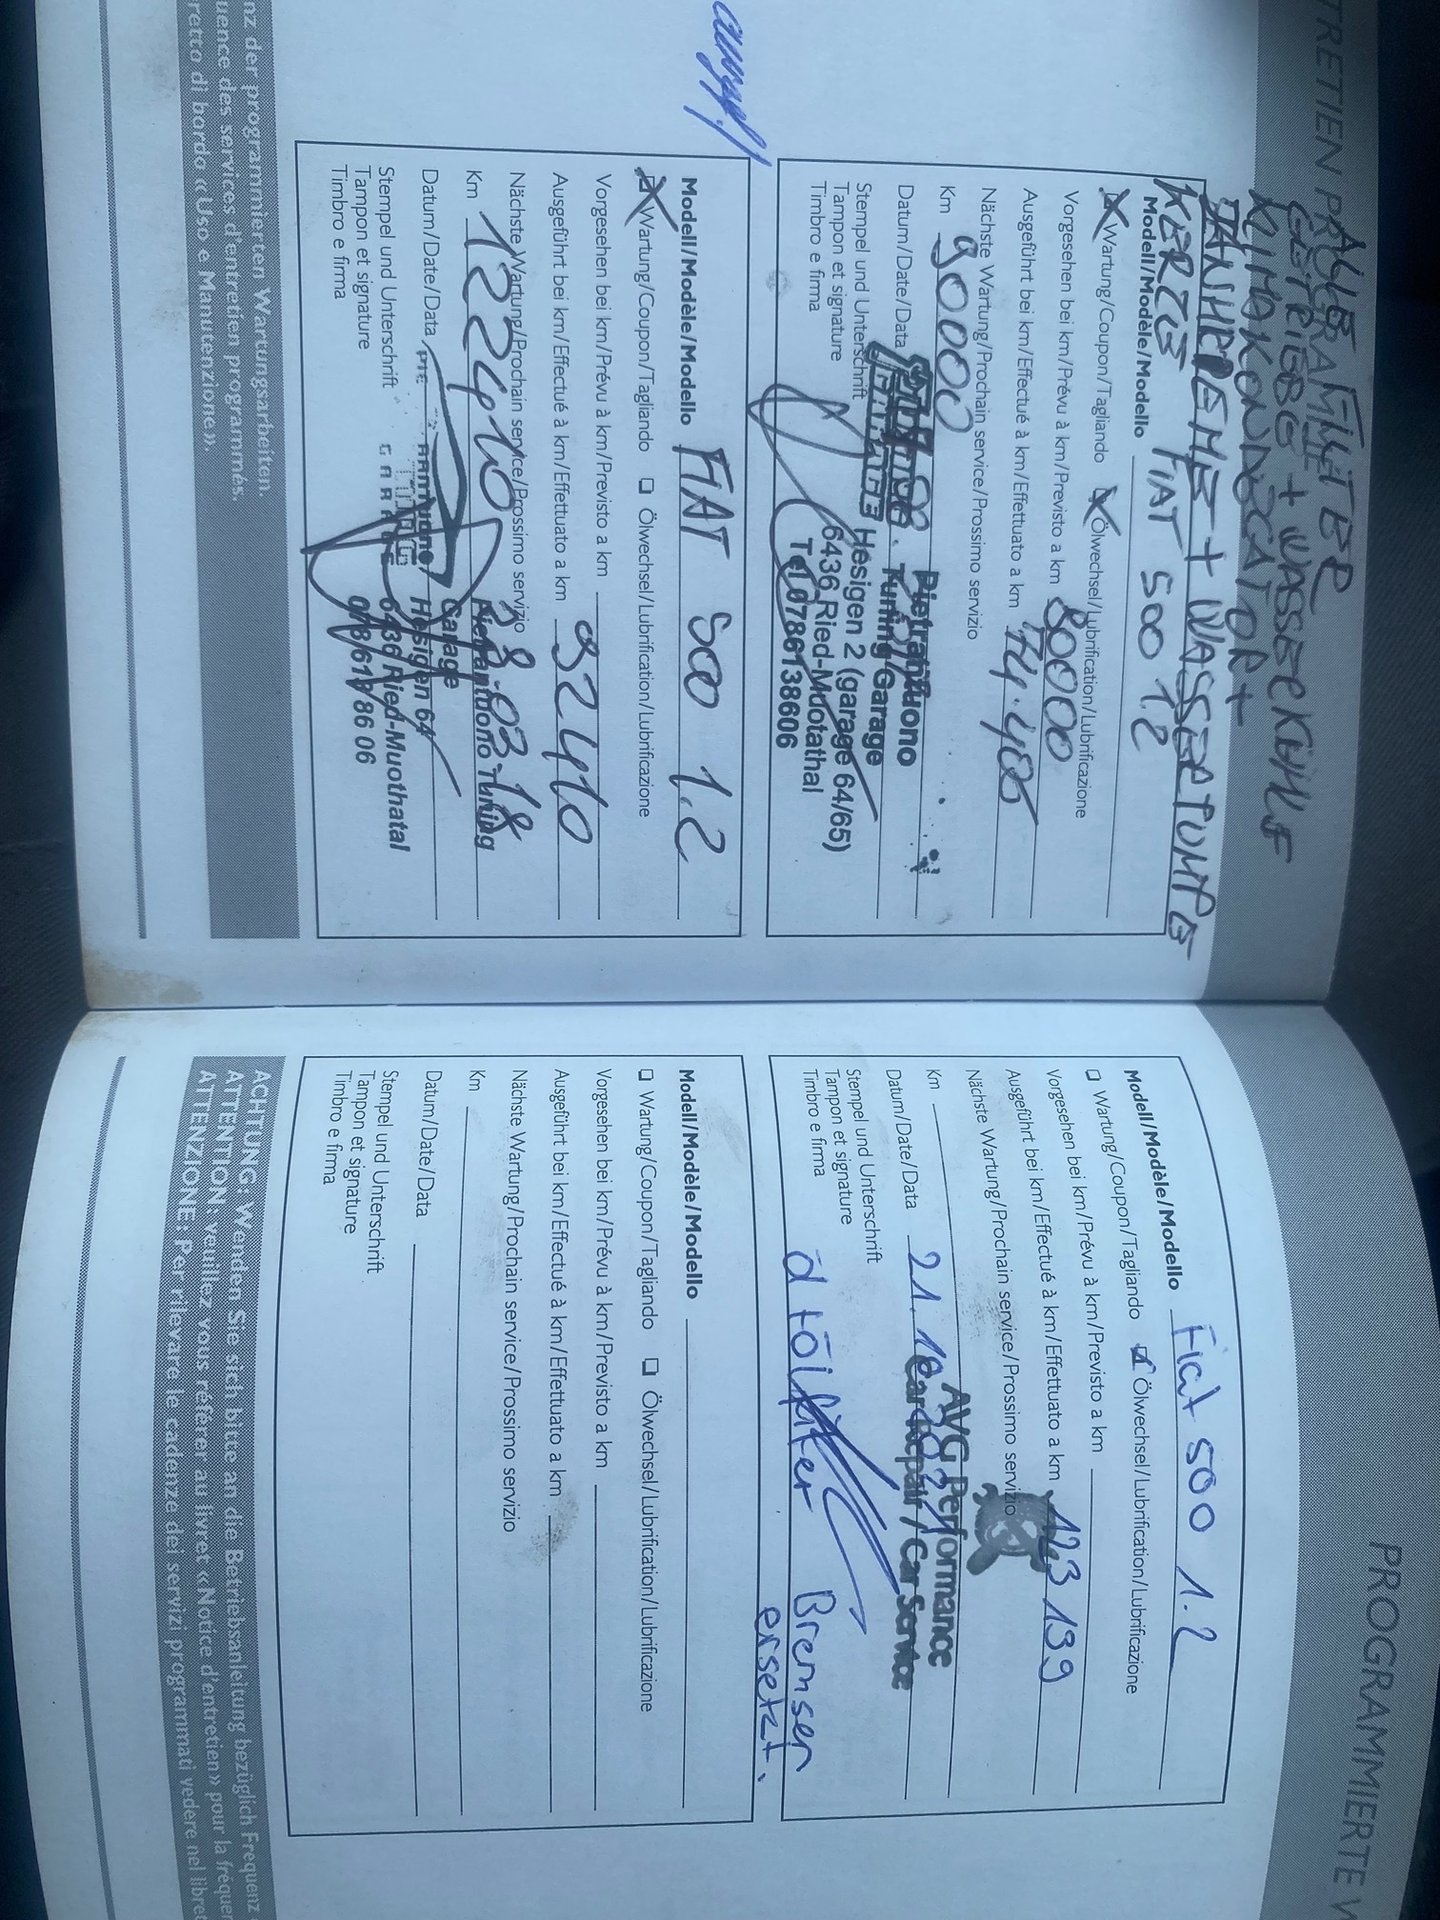 TRETIEN PR
ALLE FILTER
GETRIEBE + WASSER KÜHLE
KLIMAKONDØCATOR +
ZANHRIEME + WASSERPUMPE
KERZE
Modell/Modèle/Modello FIAT 500 1.2
Wartung/Coupon/Tagliando Ölwechsel/Lubrification/Lubrificazione
Vorgesehen bei km/Prévu à km/Previsto a km 80000
Ausgeführt bei km/Effectué à km/Effettuato a km 74.405
Nächste Wartung/Prochain service/Prossimo servizio
Km 90000
Datum/Date/Data
Pietrantuono
Tuning/Garage
Hesigen 2 (garage 64/65)
6436 Ried-Muotathal
Tel 0786138606
Stempel und Unterschrift
Tampon et signature
Timbro e firma
Modell/Modèle/Modello FIAT 500 1.2
Wartung/Coupon/Tagliando Ölwechsel/Lubrification/Lubrificazione
Vorgesehen bei km/Prévu à km/Previsto a km
Ausgeführt bei km/Effectué à km/Effettuato a km 92410
Nächste Wartung/Prochain service/Prossimo servizio
Km 122410
Datum/Date/Data
Pietrantuono Tuning
Garage
Hesigen 64
6436 Ried-Muothatal
078 613 86 06
GARAGE
Stempel und Unterschrift
Tampon et signature
Timbro e firma
nz der programmierten Wartungsarbeiten.
uence des services d'entretien programmés.
retto di bordo «Uso e Manutenzione».
PROGRAMMIERTE W
Modell/Modèle/Modello Fiat 500 1.2
Wartung/Coupon/Tagliando Ölwechsel/Lubrification/Lubrificazione
Vorgesehen bei km/Prévu à km/Previsto a km
Ausgeführt bei km/Effectué à km/Effettuato a km 123 199
Nächste Wartung/Prochain service/Prossimo servizio
Km
AVG Performance
Car Repair / Car Service
Datum/Date/Data 21.10.2021
Stempel und Unterschrift
Tampon et signature
Timbro e firma
Bremsen
ersetzt.
Modell/Modèle/Modello
Wartung/Coupon/Tagliando Ölwechsel/Lubrification/Lubrificazione
Vorgesehen bei km/Prévu à km/Previsto a km
Ausgeführt bei km/Effectué à km/Effettuato a km
Nächste Wartung/Prochain service/Prossimo servizio
Km
Datum/Date/Data
Stempel und Unterschrift
Tampon et signature
Timbro e firma
ACHTUNG: Wenden Sie sich bitte an die Betriebsanleitung bezüglich Frequenz
ATTENTION: veuillez vous référer au livret «Notice d'entretien» pour la fréquen
ATTENZIONE: Per rilevare le cadenze dei servizi programmati vedere nel libret